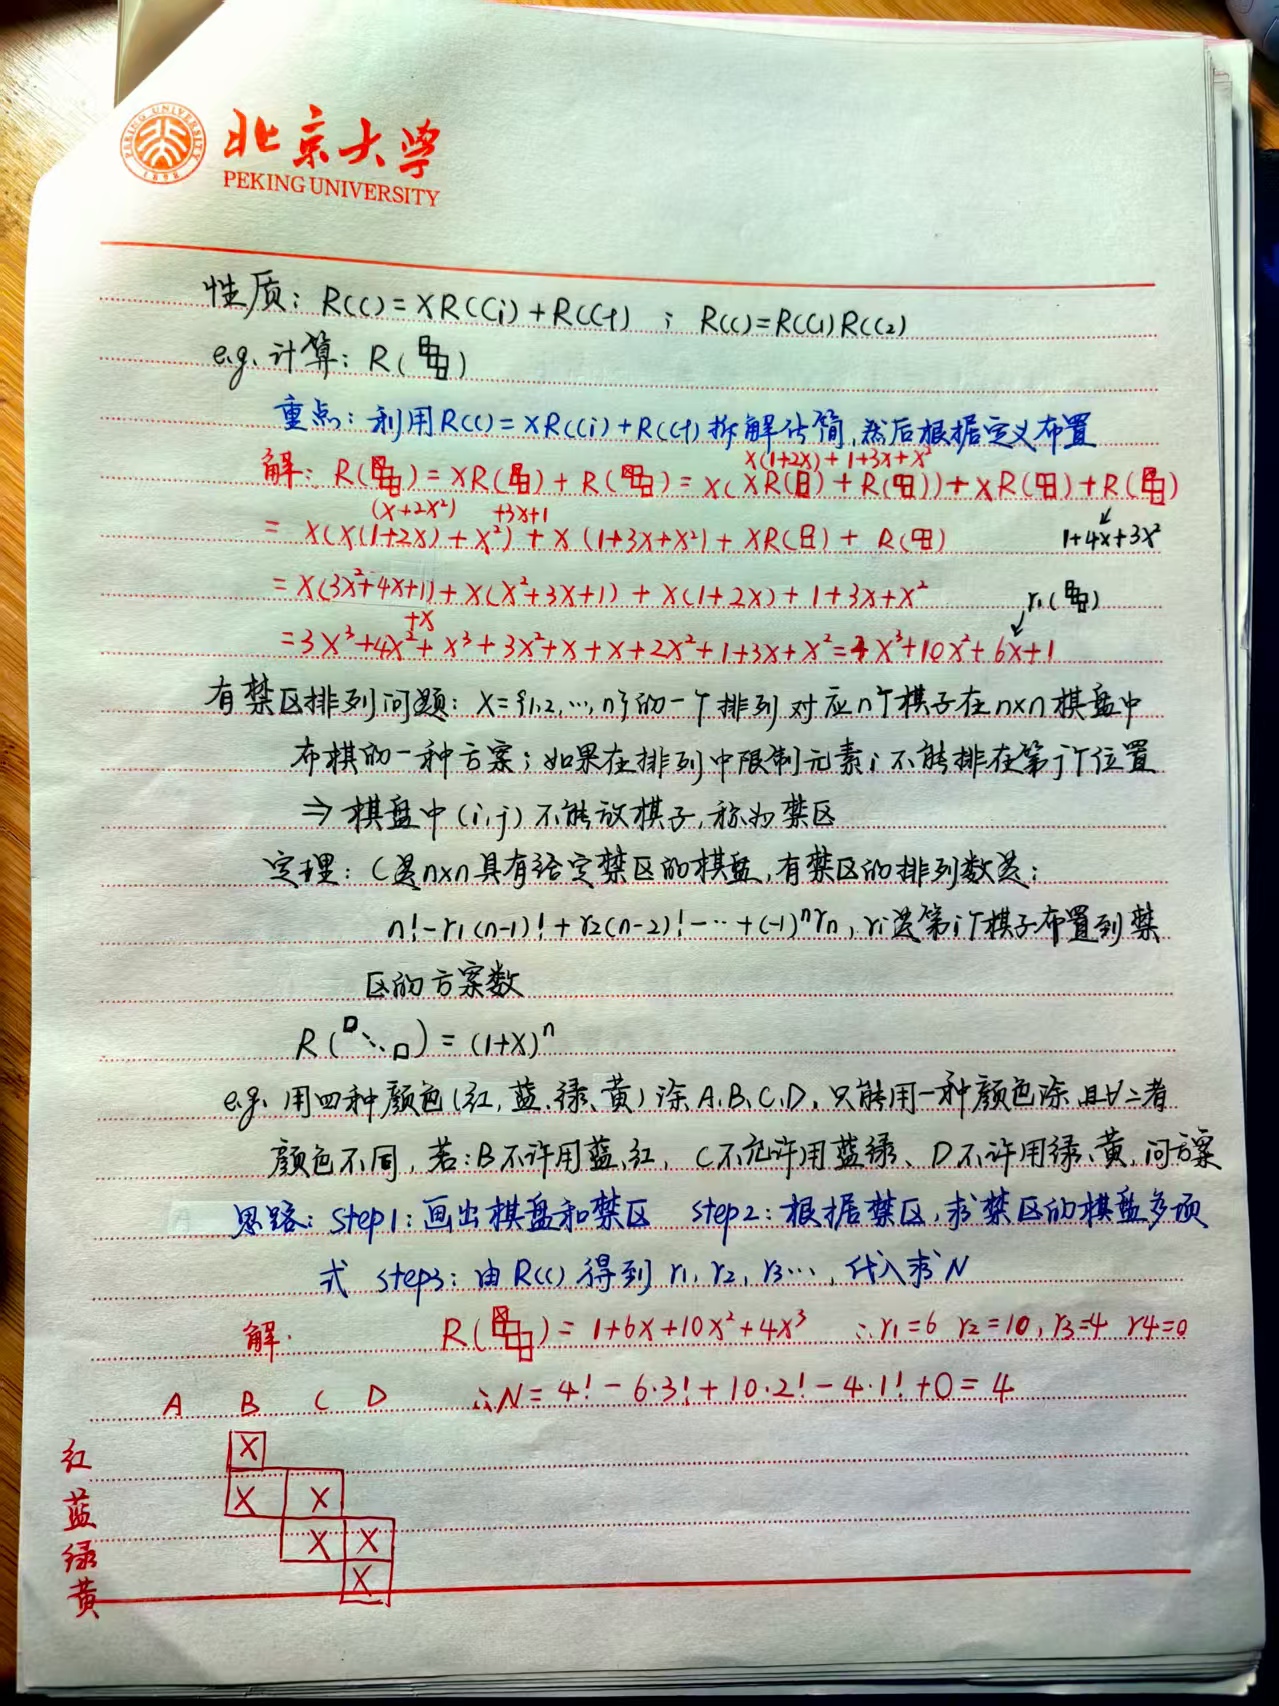 北京大学
PEKING UNIVERSITY
性质: R(C) = XR(Ci) + R(C†) ; R(C)=R(C1)R(C2)
e.g. 计算: R( )
重点: 利用R(C) = XR(Ci) + R(C†) 拆解化简, 然后根据定义布置
X(1+2X) + 1+3X+X²
解: R( ) = XR( ) + R( ) = X( XR( ) + R( )) + XR( ) + R( )
(X+2X²) +3X+1
= X(X(1+2X) + X²) + X (1+3X+X²) + XR( ) + R( ) 1+4X+3X²
= X(3X²+4X+1) + X(X²+3X+1) + X(1+2X) + 1+3X+X² r₁( )
+X
= 3X³+4X²+ X³+3X²+X+X+2X²+1+3X+X²=4X³+10X²+6X+1
有禁区排列问题: X={1,2,…,n}的一个排列对应n个棋子在n×n棋盘中
布棋的一种方案; 如果在排列中限制元素i不能排在第j个位置
⇒ 棋盘中(i,j)不能放棋子, 称为禁区
定理: C是n×n具有给定禁区的棋盘, 有禁区的排列数是:
n!-r₁(n-1)!+r₂(n-2)!-…+(-1)ⁿrn, ri是第i个棋子布置到禁
区的方案数
R( ⋱ ) = (1+X)ⁿ
e.g. 用四种颜色(红, 蓝、绿、黄)涂A、B、C、D, 只能用一种颜色涂, 且∀二者
颜色不同, 若: B不许用蓝、红, C不允许用蓝绿、D不许用绿、黄, 问方案
思路: step1: 画出棋盘和禁区 step2: 根据禁区, 求禁区的棋盘多项
式 step3: 由R(C)得到 r₁, r₂, r₃…, 代入求N
解: R( ) = 1+6X+10X²+4X³ ∴r₁=6 r₂=10, r₃=4 r4=0
A B C D ∴N = 4! - 6·3! + 10·2! - 4·1! +0 = 4
红 X
蓝 X X
绿 X X
黄 X